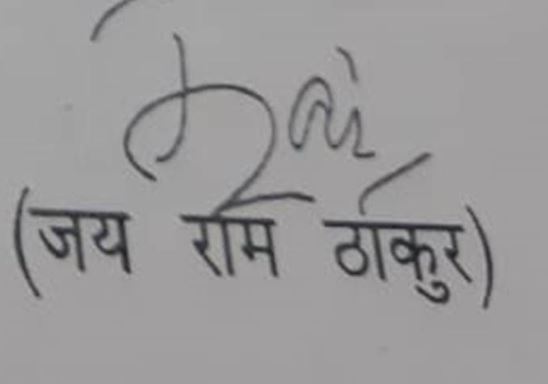 (जय राम ठाकुर)